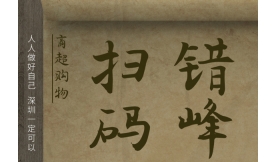 错峰
扫码
商超购物
人人做好自己 深圳一定可以